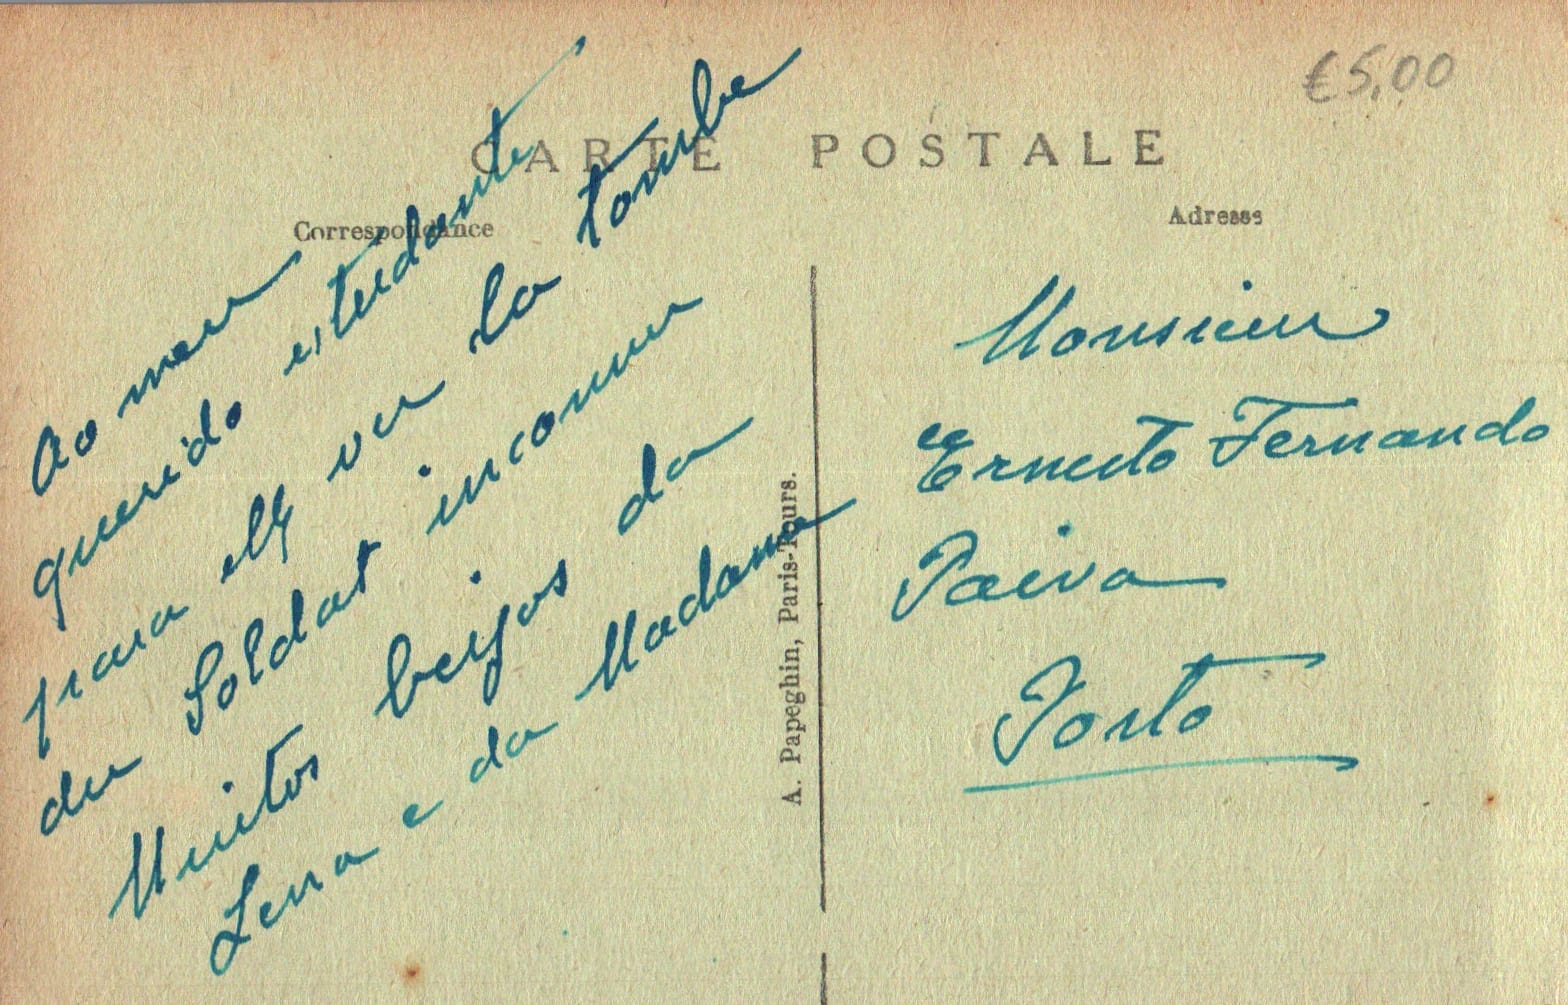 €5,00
CARTE POSTALE
Correspondance
Adresse
Ao meu
querido estudante
para elle ver la tombe
du Soldat inconnu
Muitos beijos da
Lena e da Madame
A. Papeghin, Paris-Tours.
Monsieur
Ernesto Fernando
Paiva
Porto